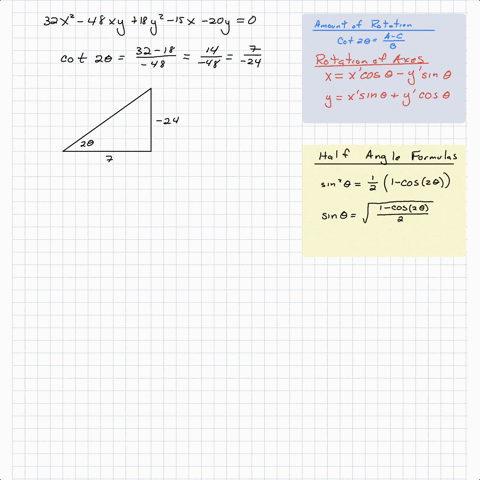 32x² - 48xy + 18y² - 15x - 20y = 0
cot 2θ = 32-18/-48 = 14/-48 = 7/-24
-24
2θ
7
Amount of Rotation
Cot 2θ = A-C/B
Rotation of Axes
x = x'cos θ - y'sin θ
y = x'sin θ + y'cos θ
Half Angle Formulas
sin²θ = 1/2 (1-cos(2θ))
sin θ = √(1-cos(2θ)/2)